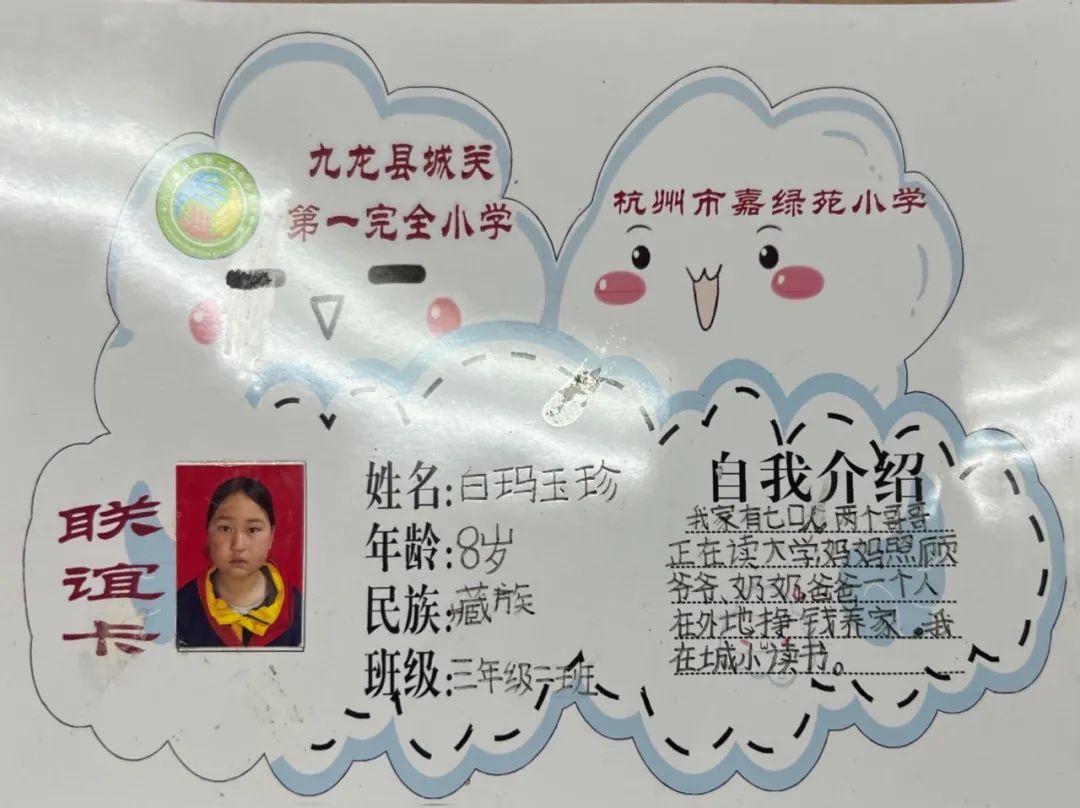 九龙县城关
第一完全小学
杭州市嘉绿苑小学
联谊卡
姓名:白玛玉珍
年龄:8岁
民族:藏族
班级:三年级二班
自我介绍
我家有七口人,两个哥哥
正在读大学妈妈照顾
爷爷、奶奶。爸爸一个人
在外地挣钱养家。我
在城小读书。